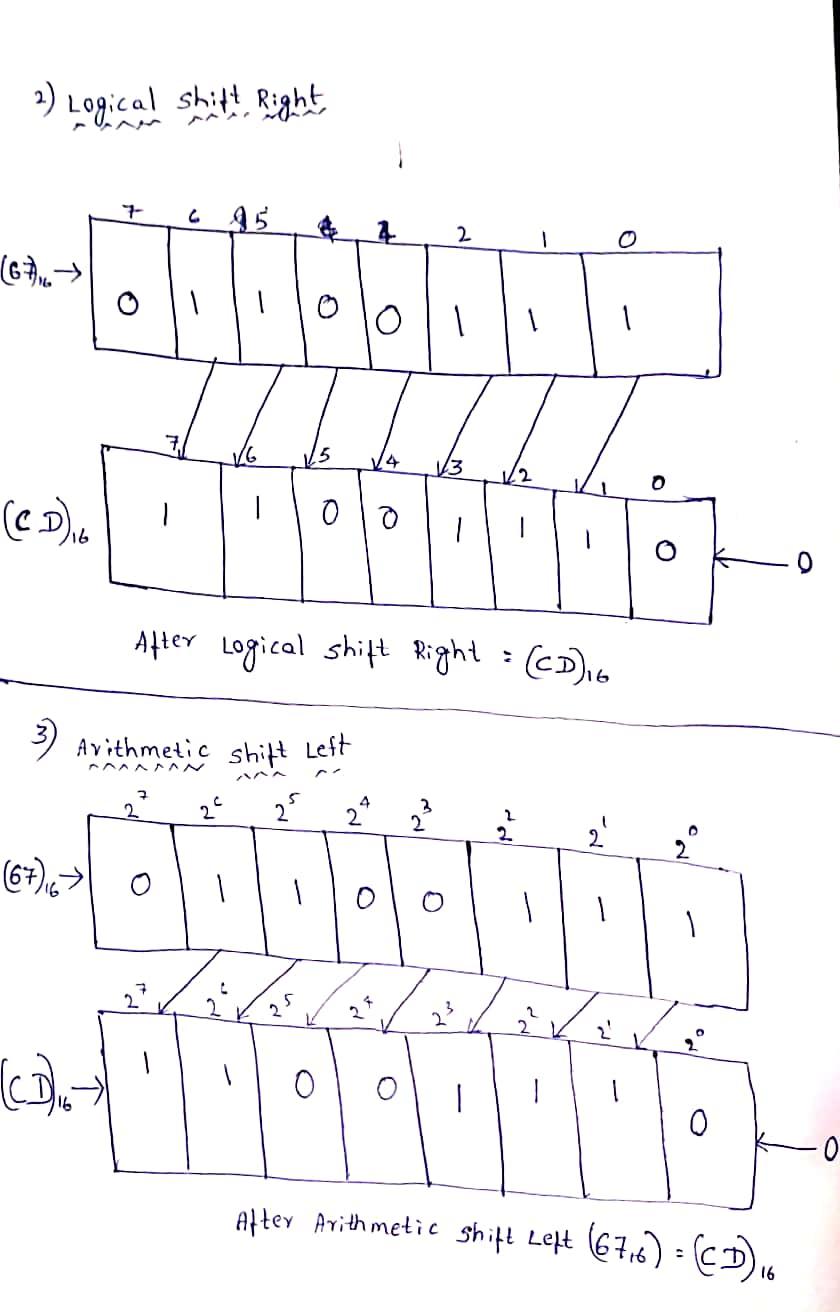 2) Logical Shift Right
7 6 5 2 1 0
(67)16 →
0 1 1 0 0 1 1 1
7 6 5 4 3 2 1 0
(CD)16
1 1 0 0 1 1 1 0 ← 0
After Logical Shift Right = (CD)16
3) Arithmetic Shift Left
2^7 2^6 2^5 2^4 2^3 2^2 2^1 2^0
(67)16 →
0 1 1 0 0 1 1 1
2^7 2^6 2^5 2^4 2^3 2^2 2^1 2^0
(CD)16 →
1 1 0 0 1 1 1 0 ← 0
After Arithmetic Shift Left (6716) = (CD)16